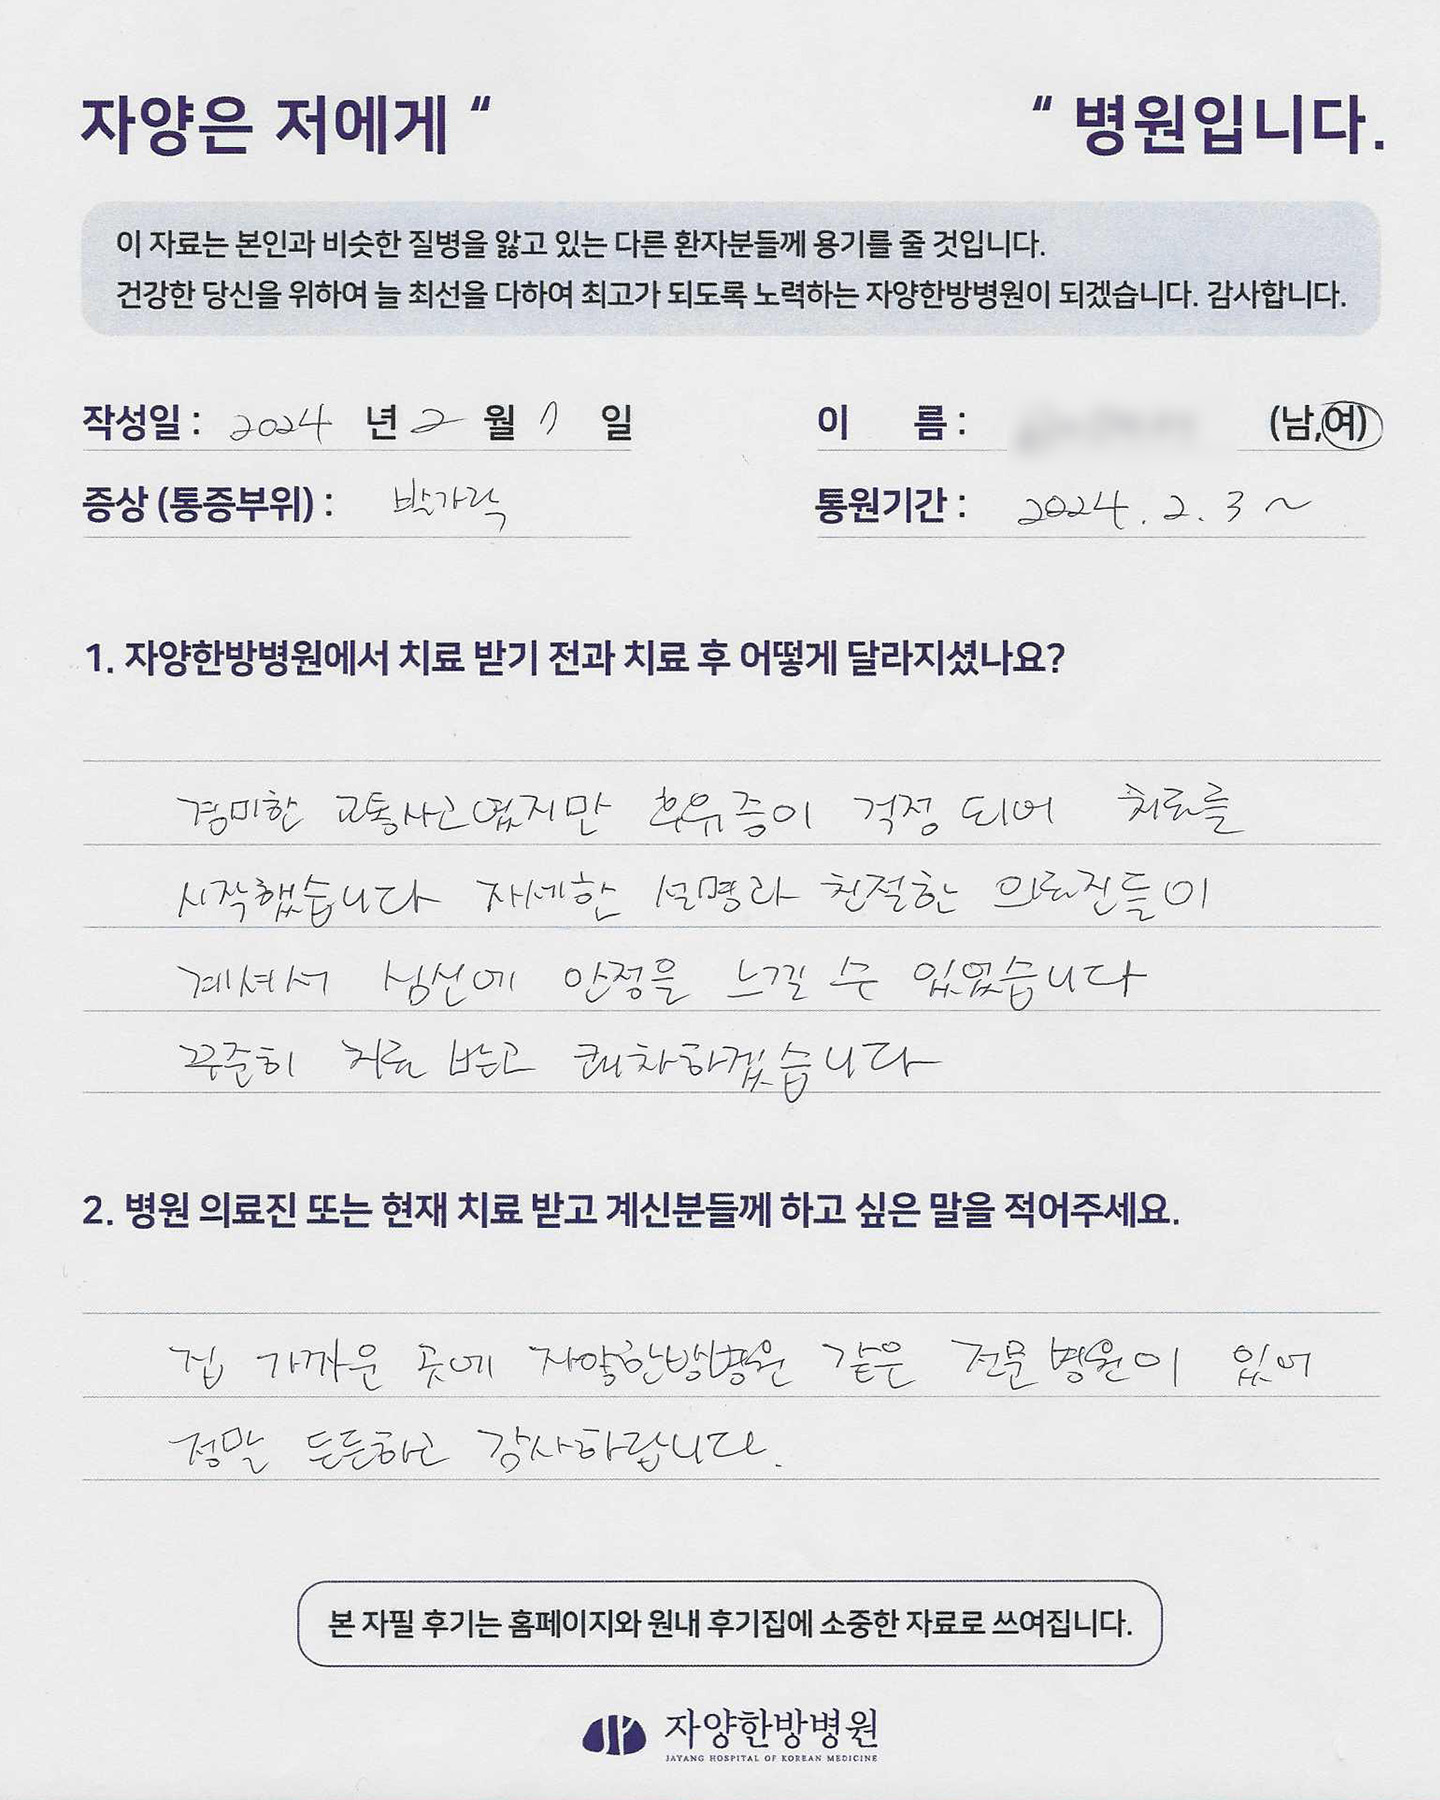 자양은 저에게 “ “ 병원입니다.
이 자료는 본인과 비슷한 질병을 앓고 있는 다른 환자분들께 용기를 줄 것입니다.
건강한 당신을 위하여 늘 최선을 다하여 최고가 되도록 노력하는 자양한방병원이 되겠습니다. 감사합니다.
작성일 : 2024 년 2 월 일 이 름 : (남,여)
증상 (통증부위) : 발가락 통원기간 : 2024. 2. 3 ~
1. 자양한방병원에서 치료 받기 전과 치료 후 어떻게 달라지셨나요?
경미한 교통사고였지만 후유증이 걱정 되어 치료를
시작했습니다 자세한 설명과 친절한 의료진들이
계셔서 심신에 안정을 느낄 수 있었습니다
꾸준히 치료 받고 쾌차하겠습니다
2. 병원 의료진 또는 현재 치료 받고 계신분들께 하고 싶은 말을 적어주세요.
집 가까운 곳에 자양한방병원 같은 전문병원이 있어
정말 든든하고 감사하답니다.
본 자필 후기는 홈페이지와 원내 후기집에 소중한 자료로 쓰여집니다.
자양한방병원
JAYANG HOSPITAL OF KOREAN MEDICINE